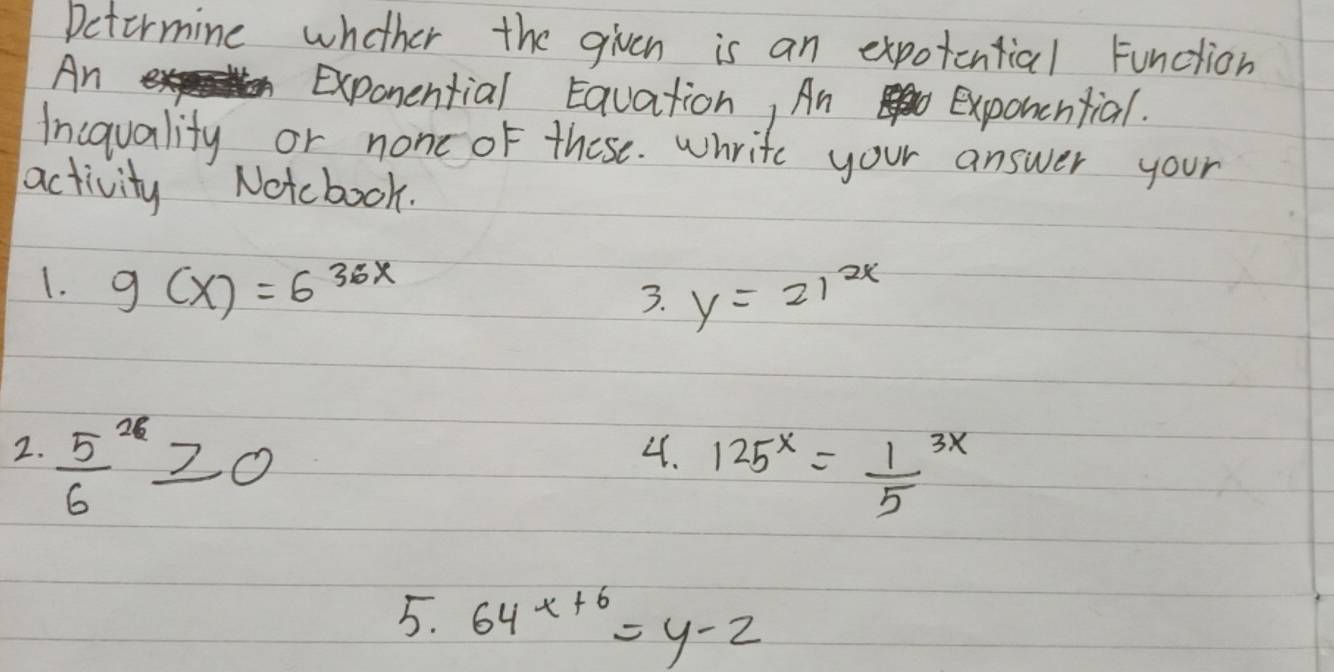 Determine whether the given is an expotential Function
An Exponential Equation, An Exponential.
Inequality or none of these. Whrite your answer your
activity Notebook.
1. g (x) = 6^36x
3. y = 21^2x
2. 5/6 ≥ 0
4. 125^x = 1/5^3x
5. 64^x+6 = y-2